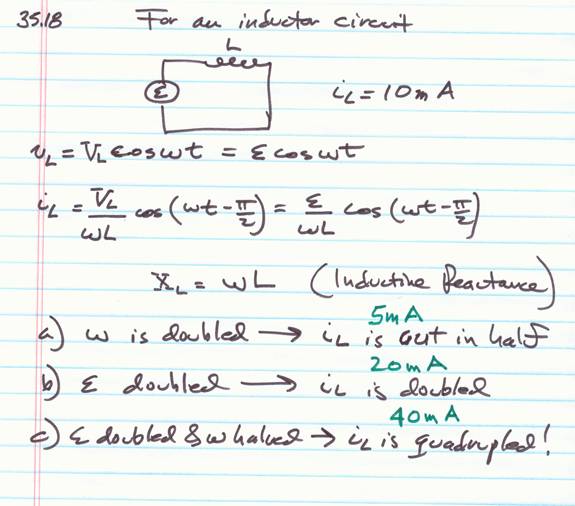 35.18 For an inductor circuit
L
ε
i_L = 10 mA
v_L = V_L cos ωt = ε cos ωt
i_L = V_L/ωL cos (ωt - π/2) = ε/ωL cos (ωt - π/2)
X_L = ωL (Inductive Reactance)
5mA
a) ω is doubled → i_L is cut in half
20mA
b) ε doubled → i_L is doubled
40mA
c) ε doubled & ω halved → i_L is quadrupled!